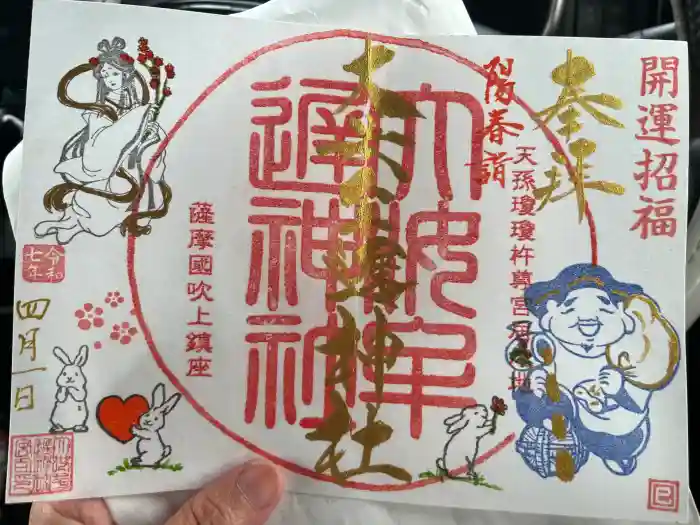 開運招福
奉拝
陽春詣
天孫瓊瓊杵尊宮居 地
大汝牟遲神社
大汝牟遲神社
薩摩國吹上鎮座
令和七年
四月一日
巳